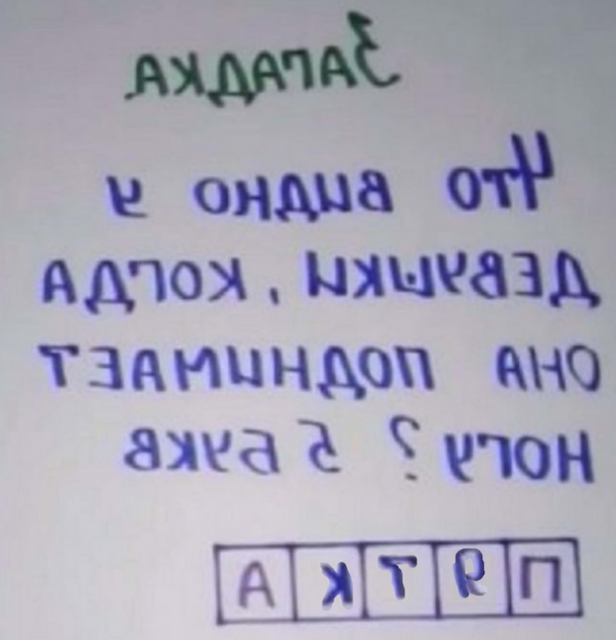 ЗАГАДКА.
ЧТО ВИДНО У
ДЕВУШКИ, КОГДА
ОНА ПОДНИМАЕТ
НОГУ? 5 БУКВ
ПЯТКА